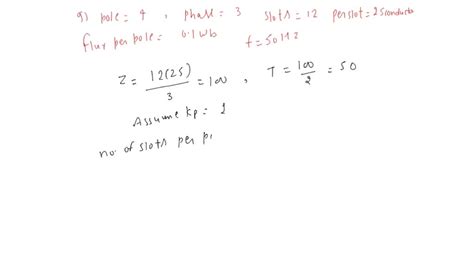 9) pole = 4 , phase = 3 slots = 12 per slot = 25 conducto
flux per pole = 0.1 wb f = 50 Hz
Z = 12(25)/3 = 100 , T = 100/2 = 50
Assume kp = 1
no. of slots per p